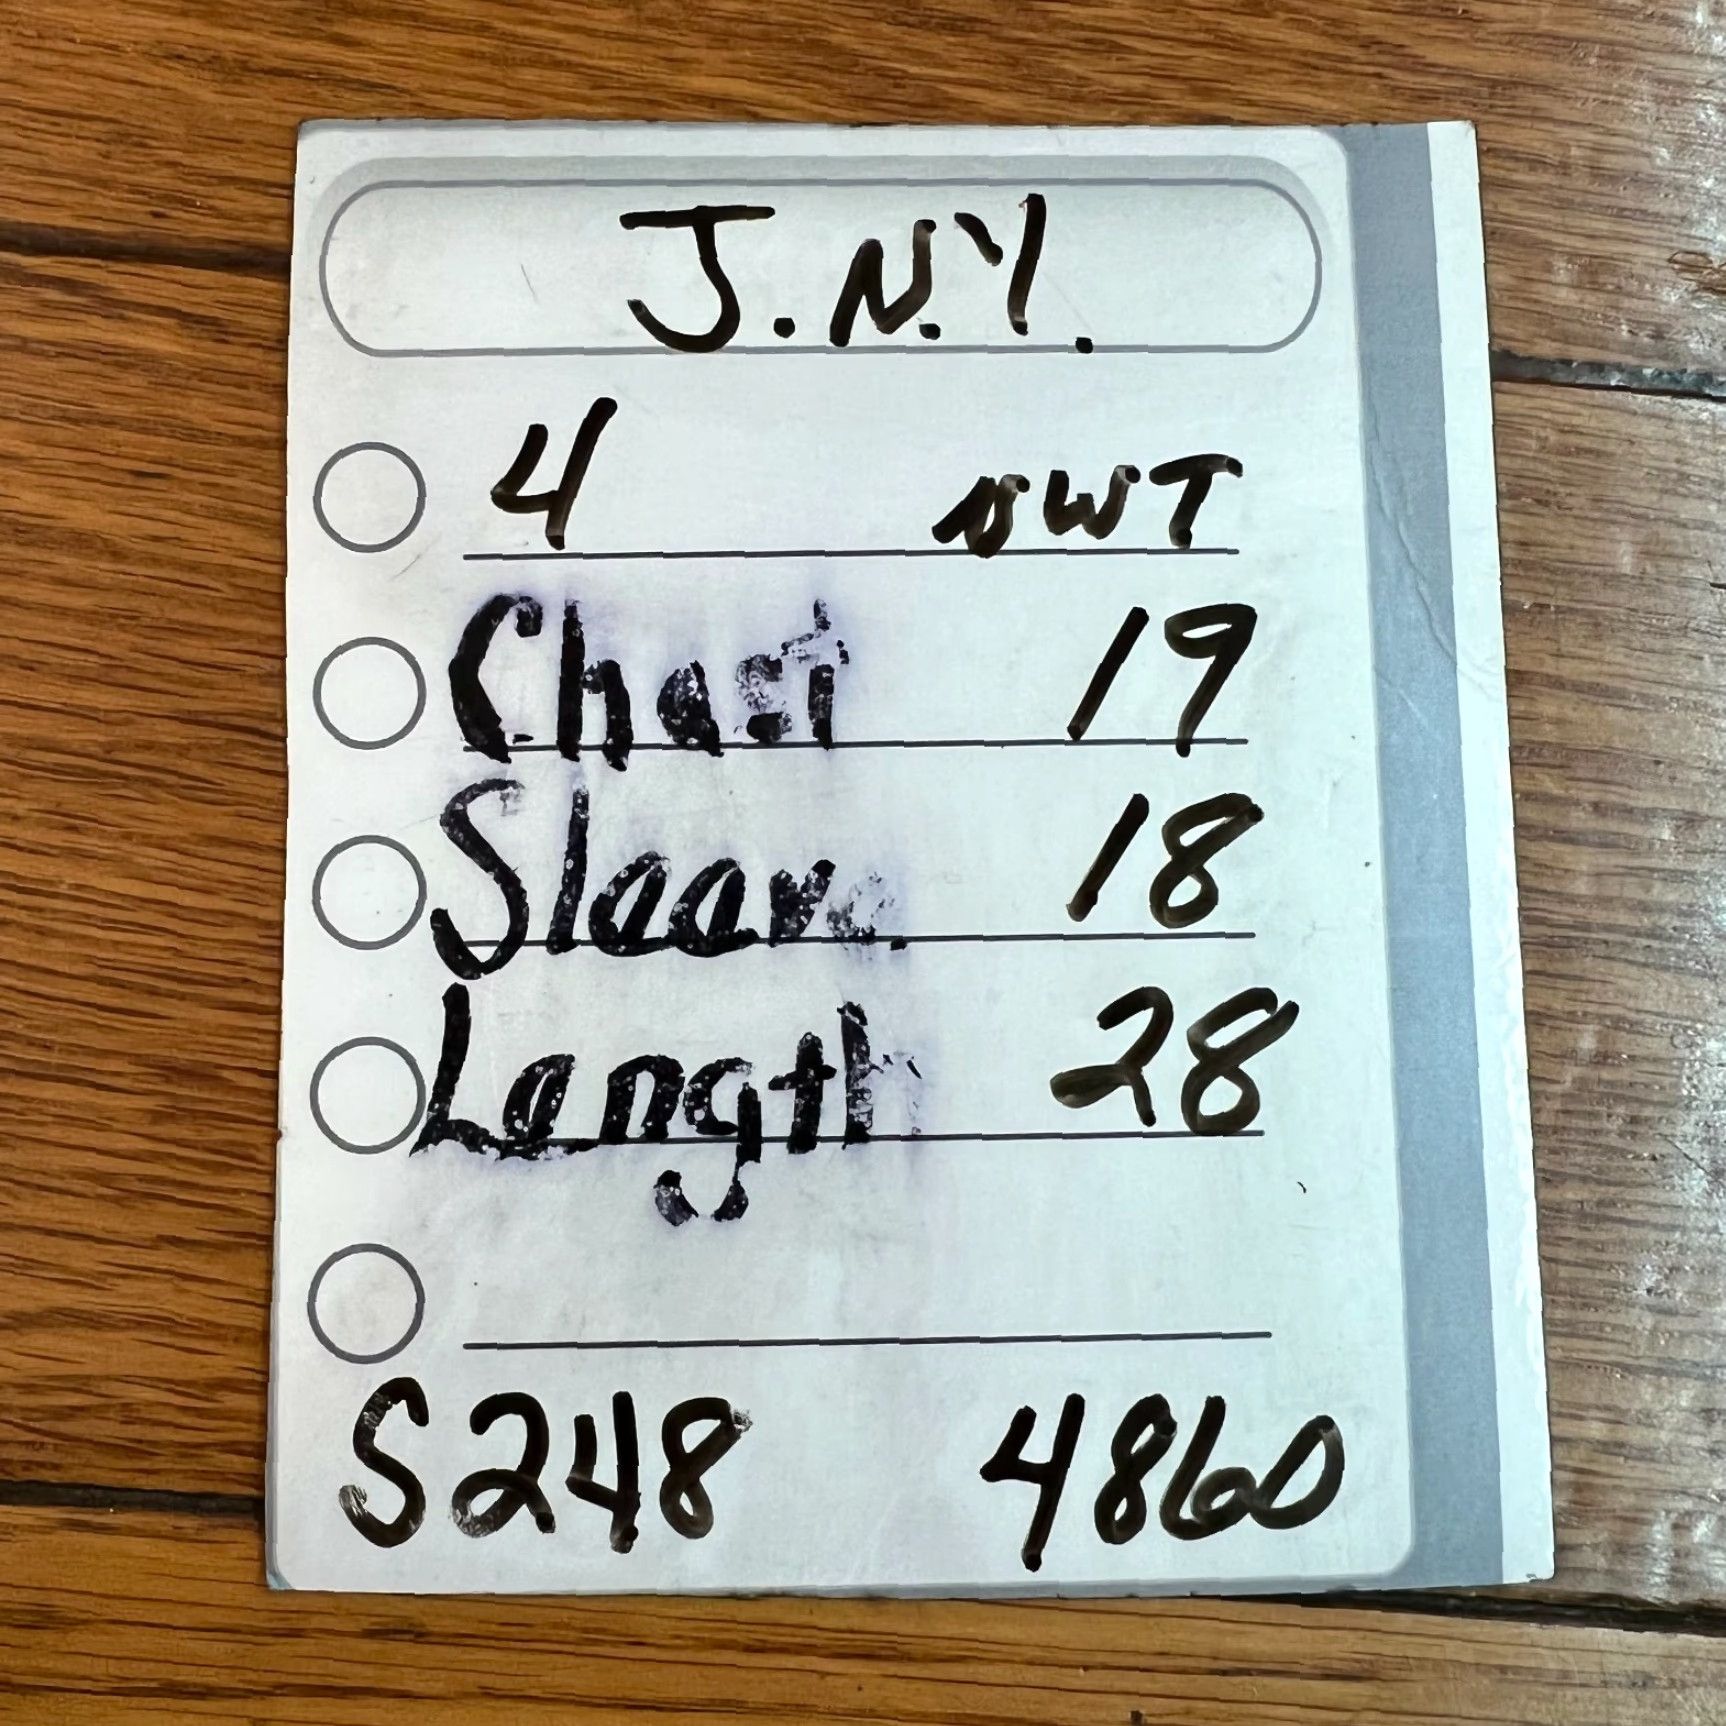 J.N.Y.
4 NWT
Chest 19
Sleeve 18
Length 28
S248 4860